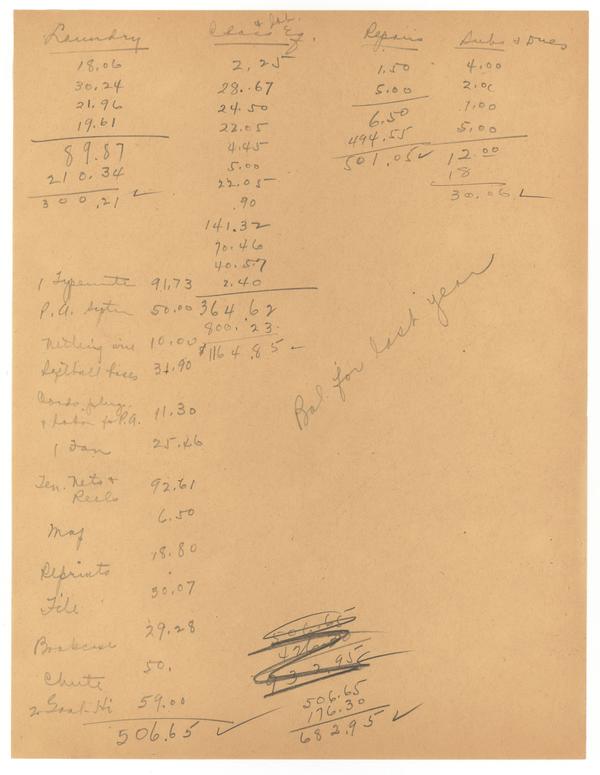 Laundry
18.06
30.24
21.96
19.61
89.87
210.34
300.21 ✓
Class Eq.
& Lab.
2.25
28.67
24.50
22.05
4.45
5.00
22.05
.90
141.32
70.46
40.57
2.40
364 62
800.23
$1164.85 ✓
Repairs
1.50
5.00
6.50
494.55
501.05 ✓
Subs & Dues
4.00
2.00
1.00
5.00
12.00
18
30.00 ✓
Bal. for last year
1 Typewrite 91.73
P.A. System 50.00
10.00
Softball Bases 31.90
Cords, plug.
& Labor for P.A. 11.30
1 Fan 25.46
Ten. Nets &
Reels 92.61
Map 6.50
Reprints 18.80
File 30.07
Bookcase 29.28
Chute 50.
2 Goal-Hi 59.00
506.65 ✓
506.65
426.00
932.95
506.65
176.30
682.95 ✓